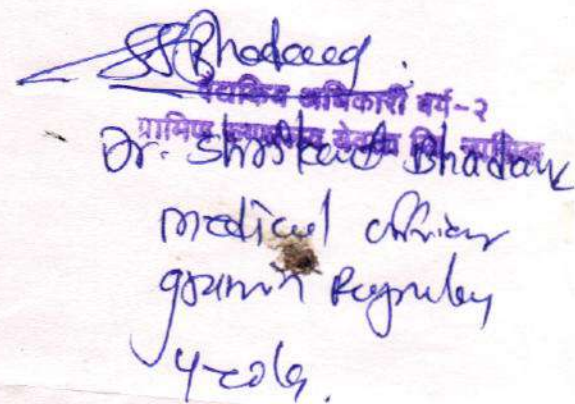 SSBhadang.
वैद्यकिय अधिकारी वर्ग-२
ग्रामिण रुग्णालय येवला जि. नासिक
Dr. Shrikant Bhadang
medical officer
gramin Rugnalay
Yeola.